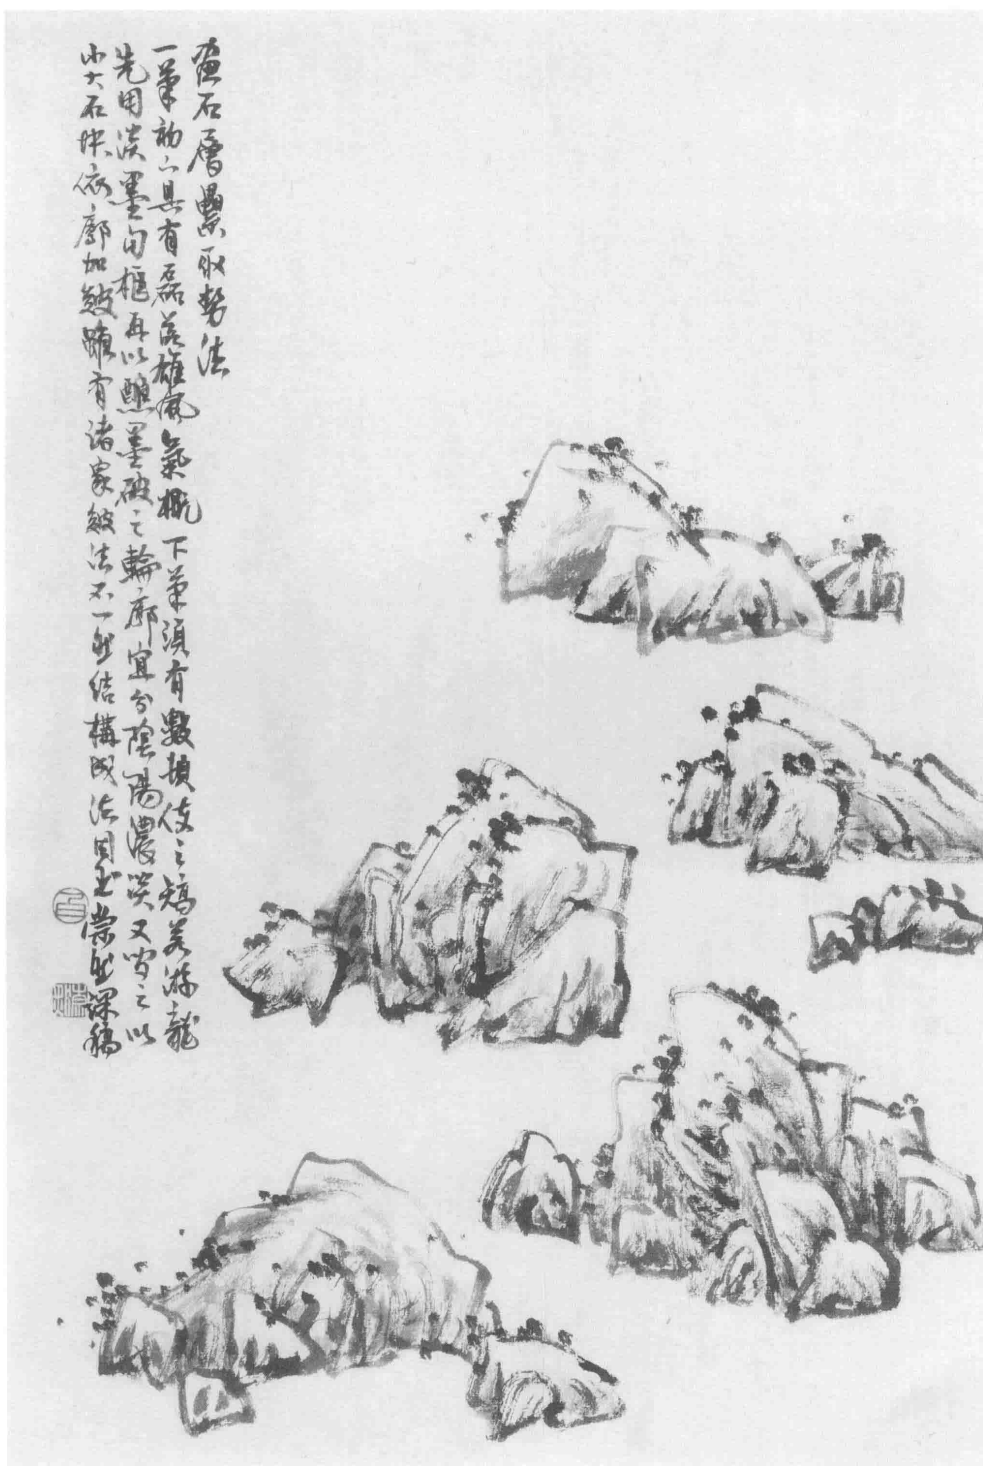 畫石層疊取勢法
一筆初下具有磊落雄風氣概下筆須有數頓使之矯若游龍
先用淡墨勾框再以醮墨破之輪廓宜分陰陽濃淡又間之以
小大石块依廓加皴雖有諸家皴法不一然結構成法同也崇然課稿